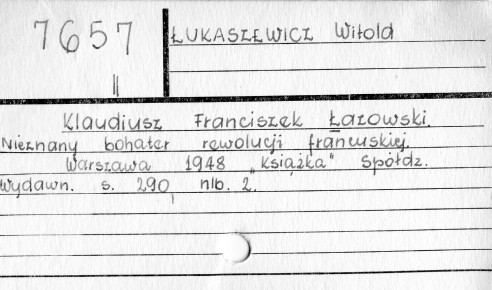 7657
ŁUKASZEWICZ Witold
II
Klaudiusz Franciszek Łazowski.
Nieznany bohater rewolucji francuskiej.
Warszawa 1948 „Książka" Spółdz.
Wydawn. s. 290, nlb. 2.